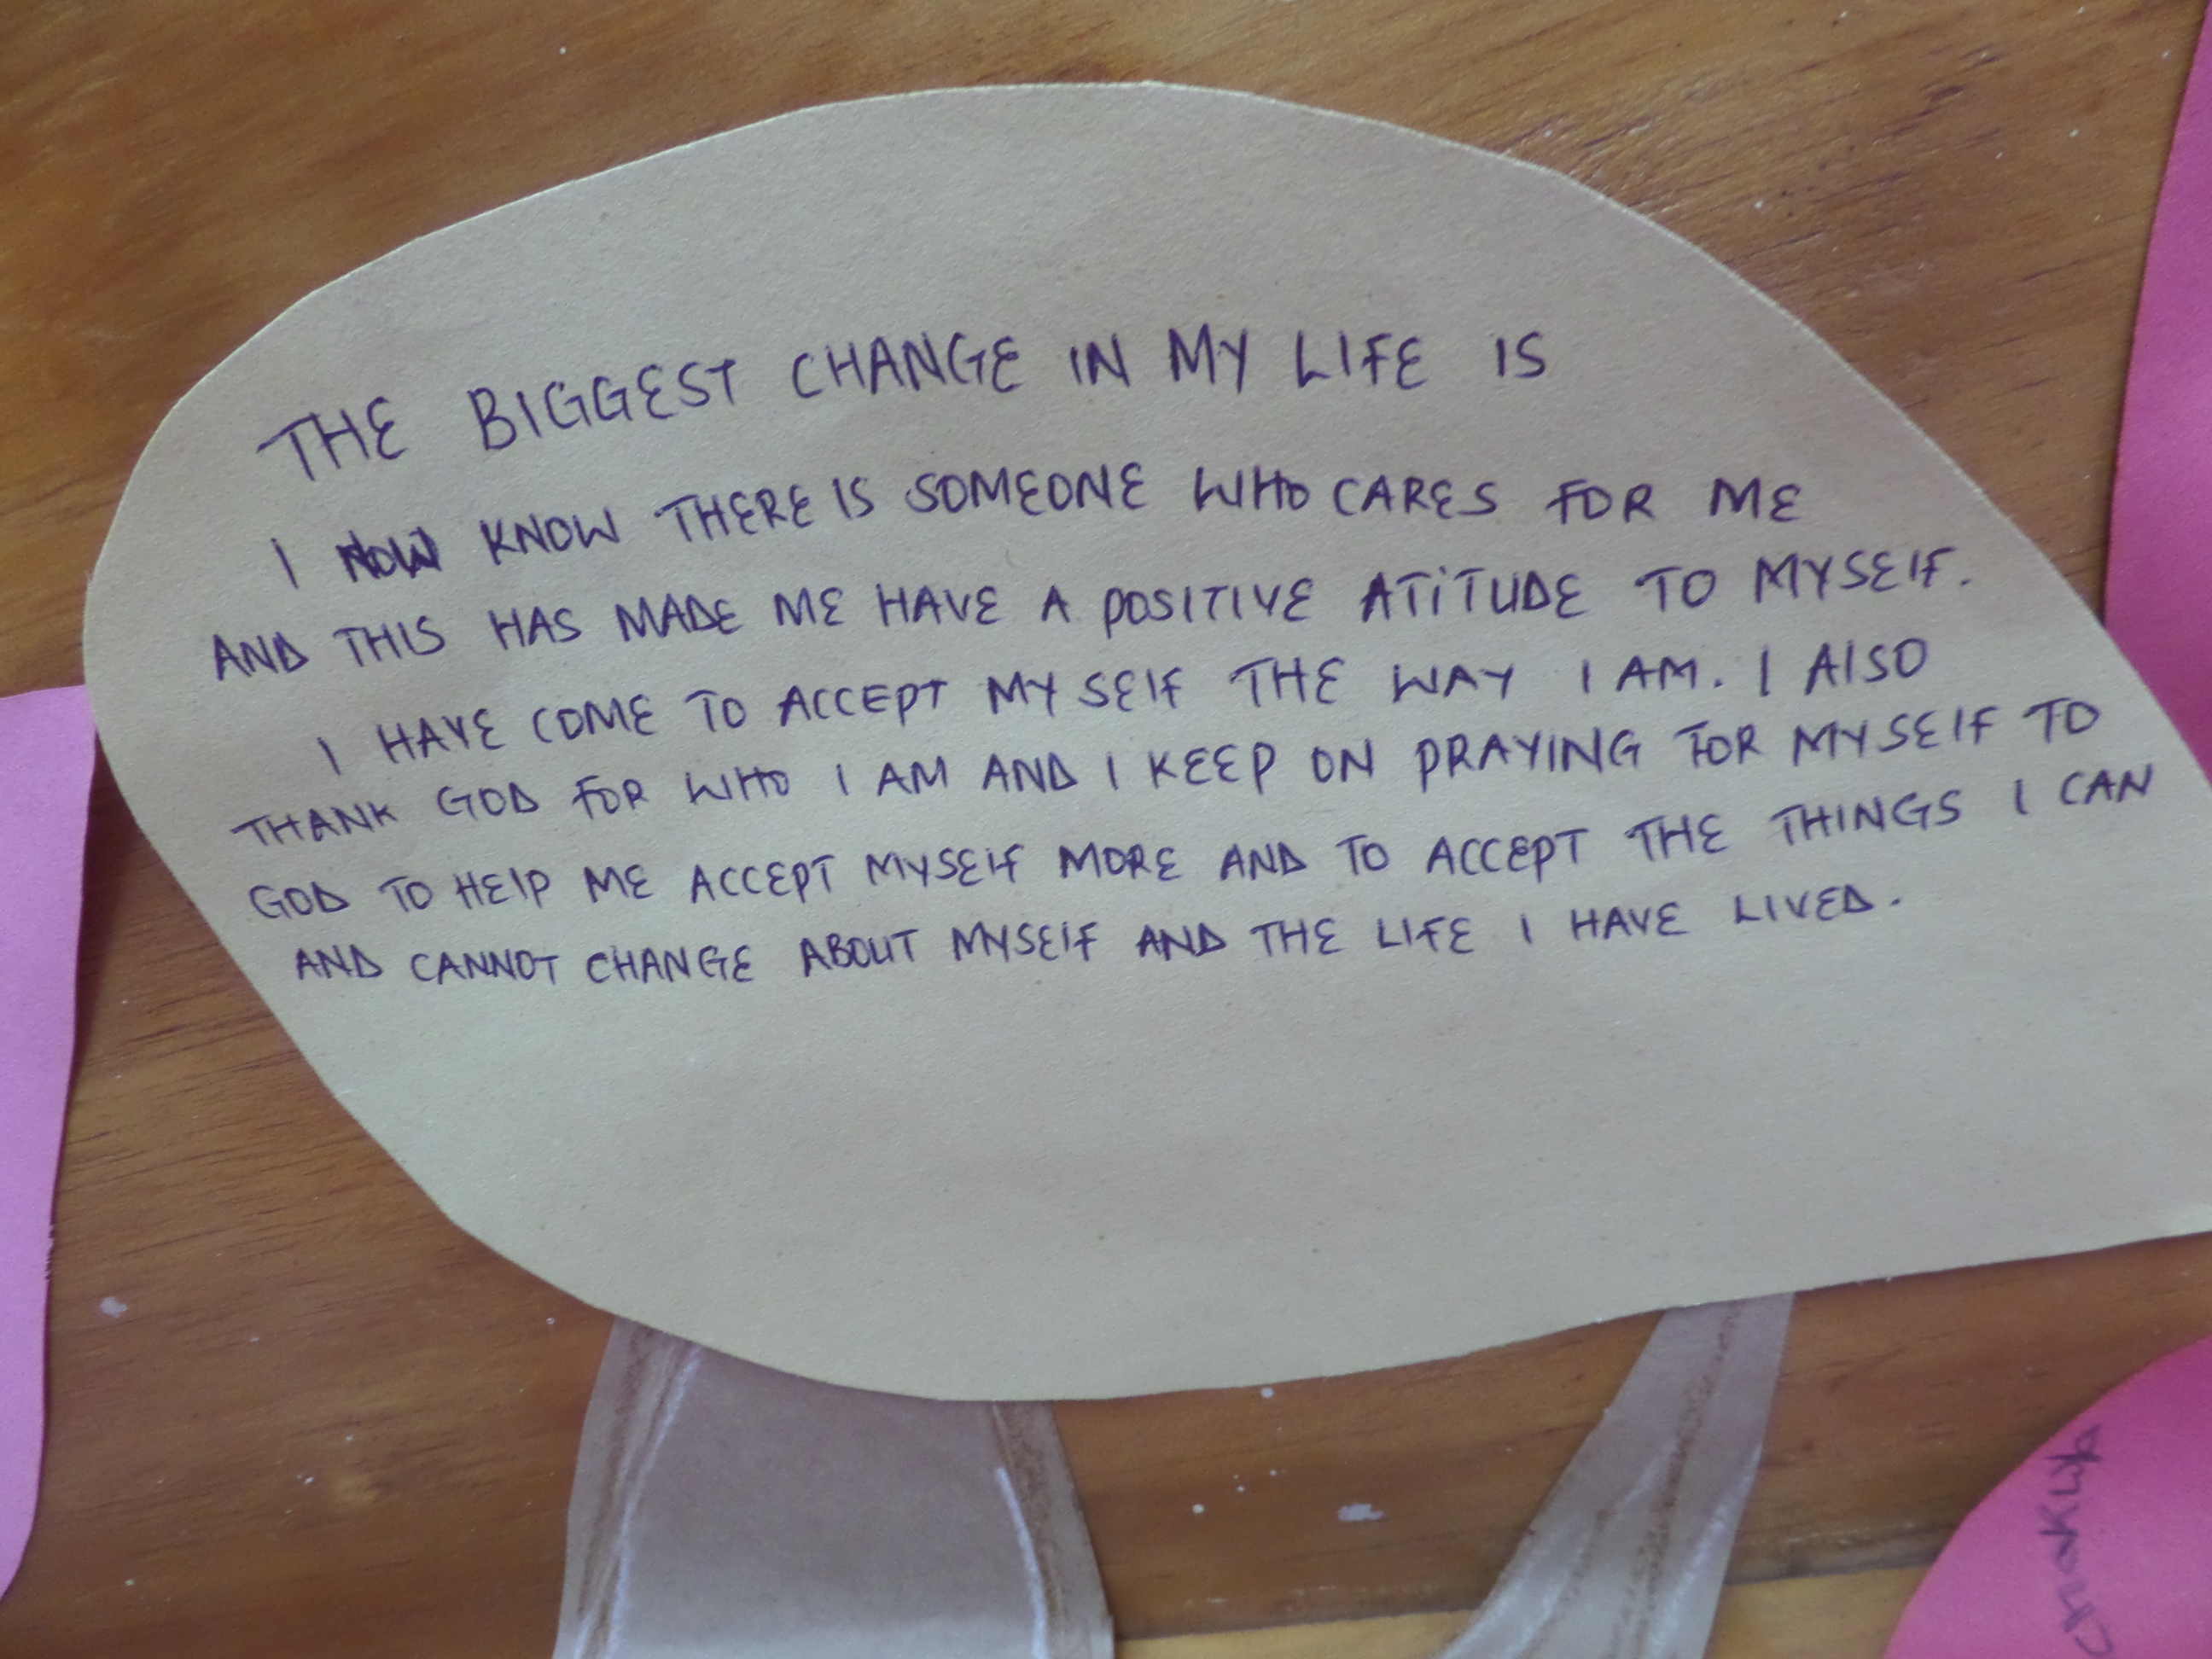 THE BIGGEST CHANGE IN MY LIFE IS
I NOW KNOW THERE IS SOMEONE WHO CARES FOR ME
AND THIS HAS MADE ME HAVE A POSITIVE ATITUDE TO MYSELF.
I HAVE COME TO ACCEPT MY SELF THE WAY I AM. I ALSO
THANK GOD FOR WHO I AM AND I KEEP ON PRAYING FOR MYSELF TO
GOD TO HELP ME ACCEPT MYSELF MORE AND TO ACCEPT THE THINGS I CAN
AND CANNOT CHANGE ABOUT MYSELF AND THE LIFE I HAVE LIVED.